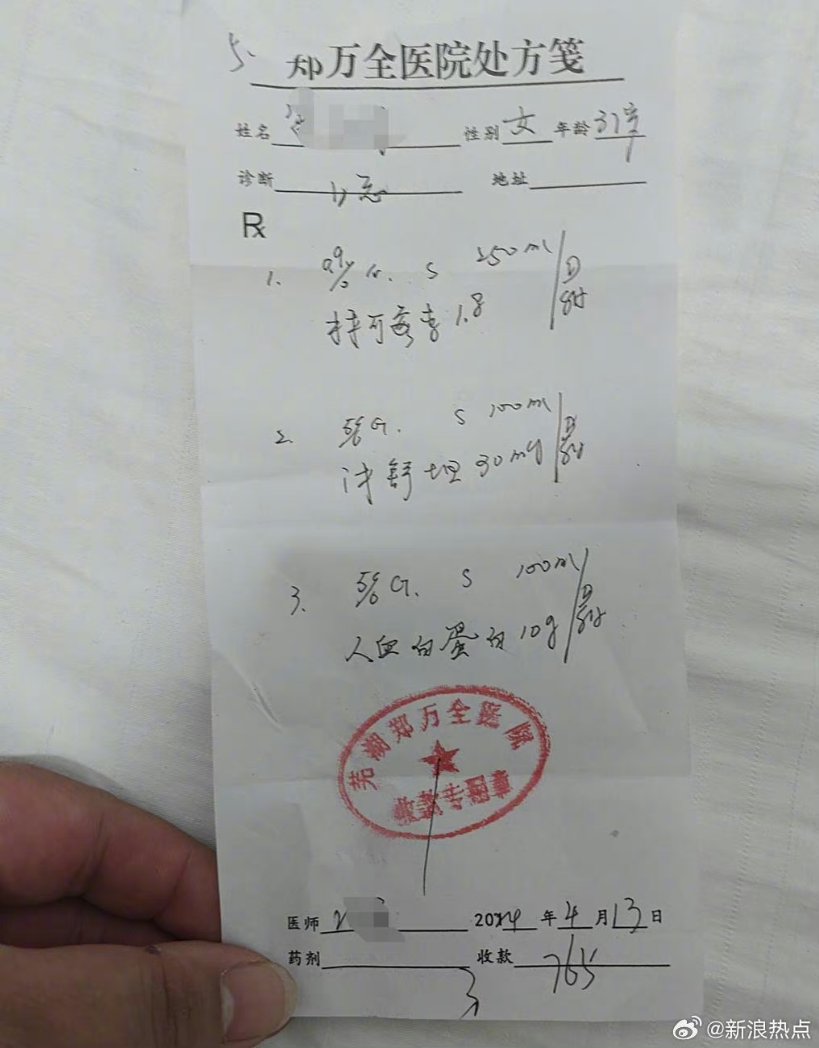 5.
郑万全医院处方笺
姓名 性别 女 年龄 37岁
诊断 地址
Rx
1. 0.9% N. S 250ml
特可客喜 1.8
2. 5% G. S 100ml
沐舒坦 30mg
3. 5% G. S 100ml
人血白蛋白 10g
芜湖郑万全医院
收款专用章
医师 2024年4月13日
药剂 收款 765
@新浪热点